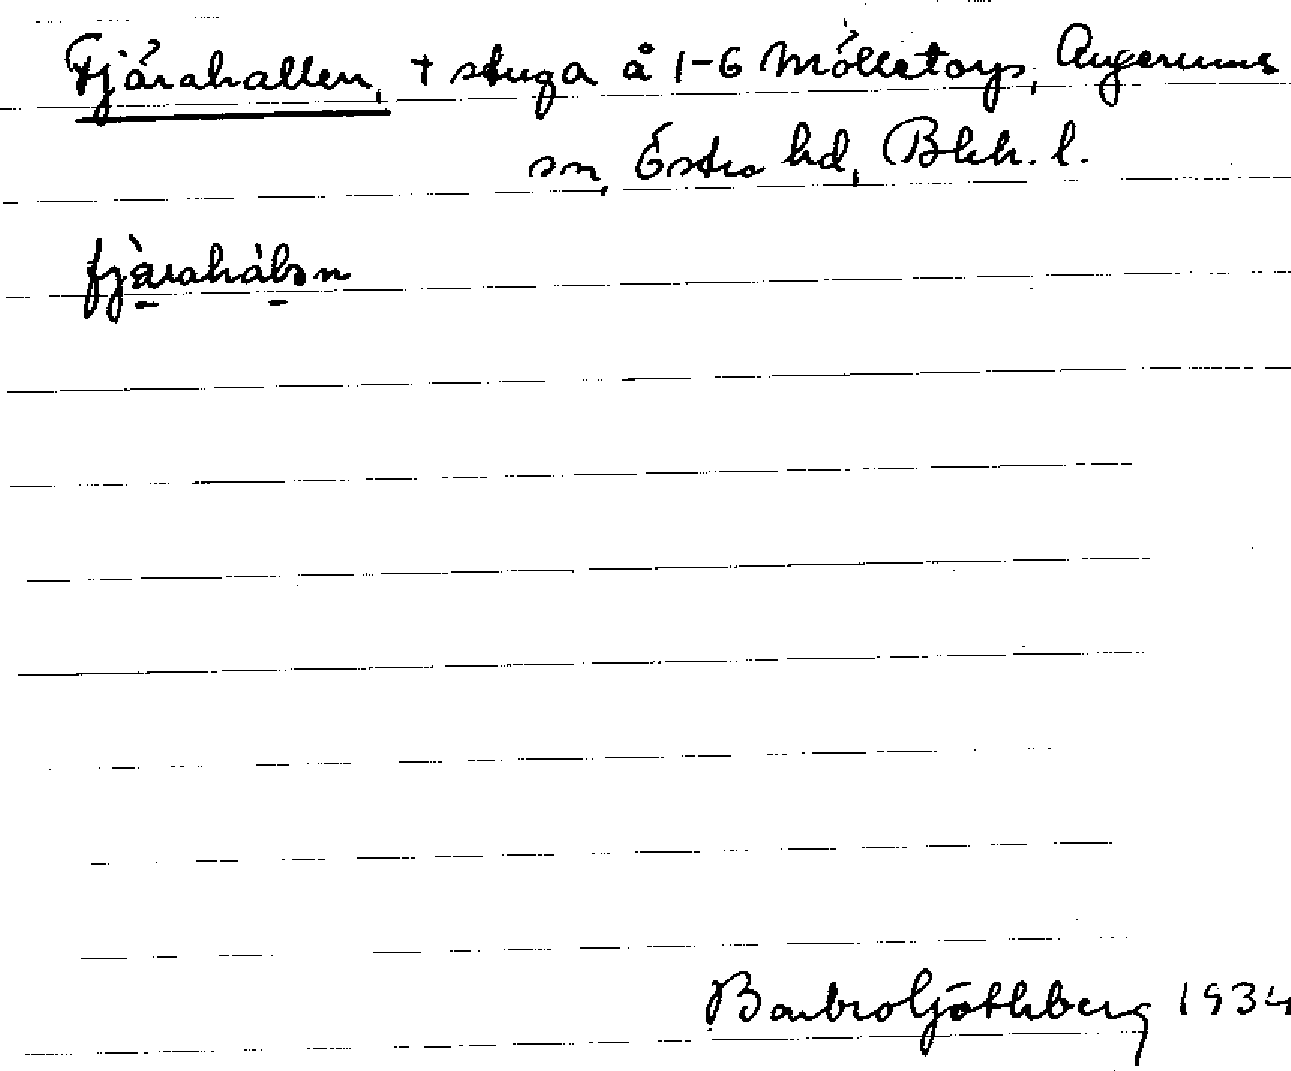 Fjärahallen, + stuga å 1-6 Mölletorp, Augerums
sn, Östra hd, Blek. l.
fjàrahálən
Barbro Götlberg 1934